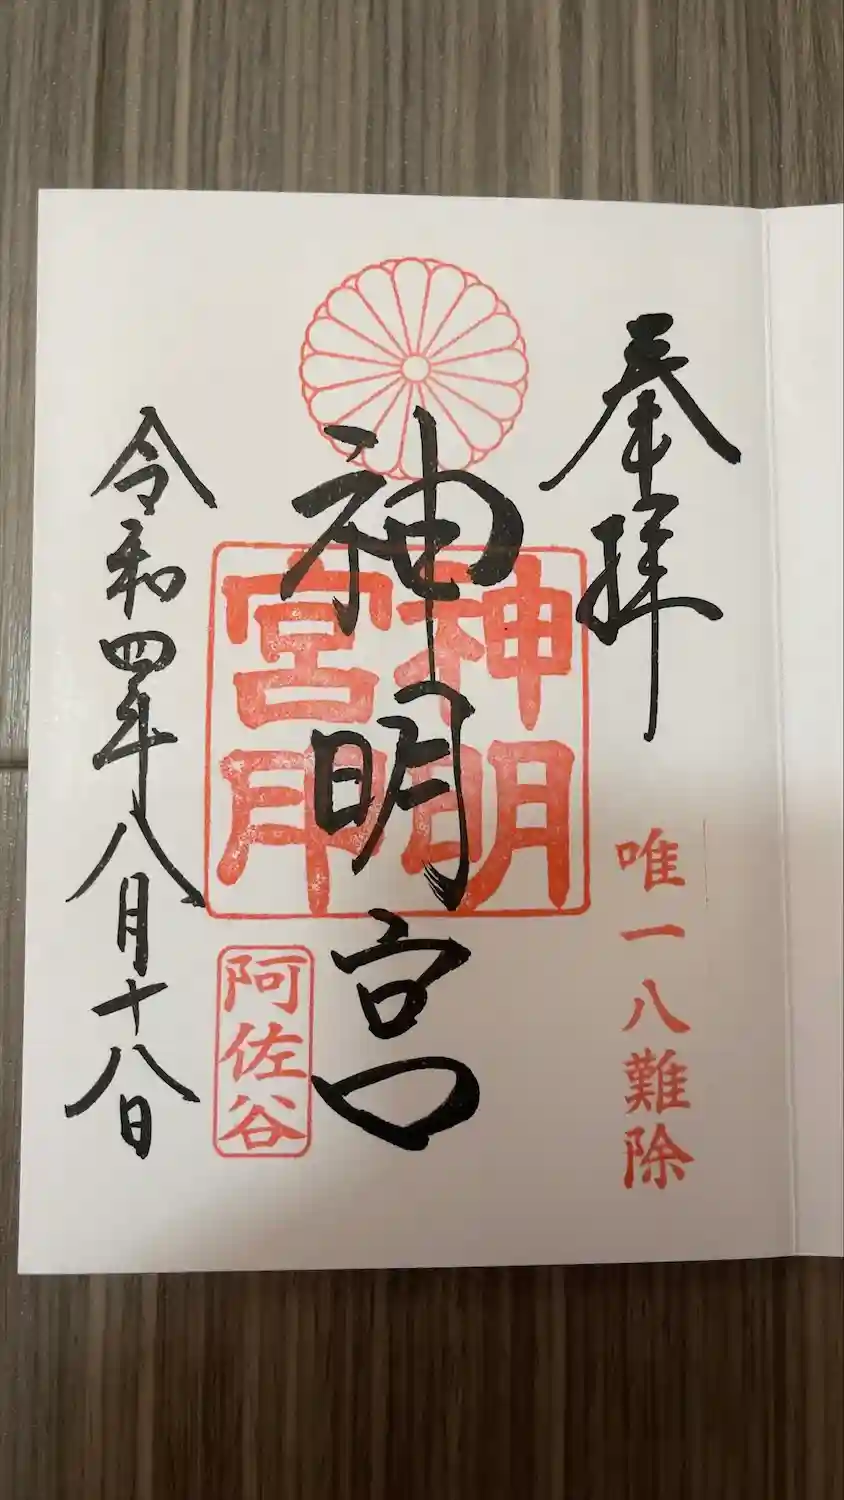 奉拝
唯一八難除
神明宮
神明
宮印
阿佐谷
令和四年八月十八日